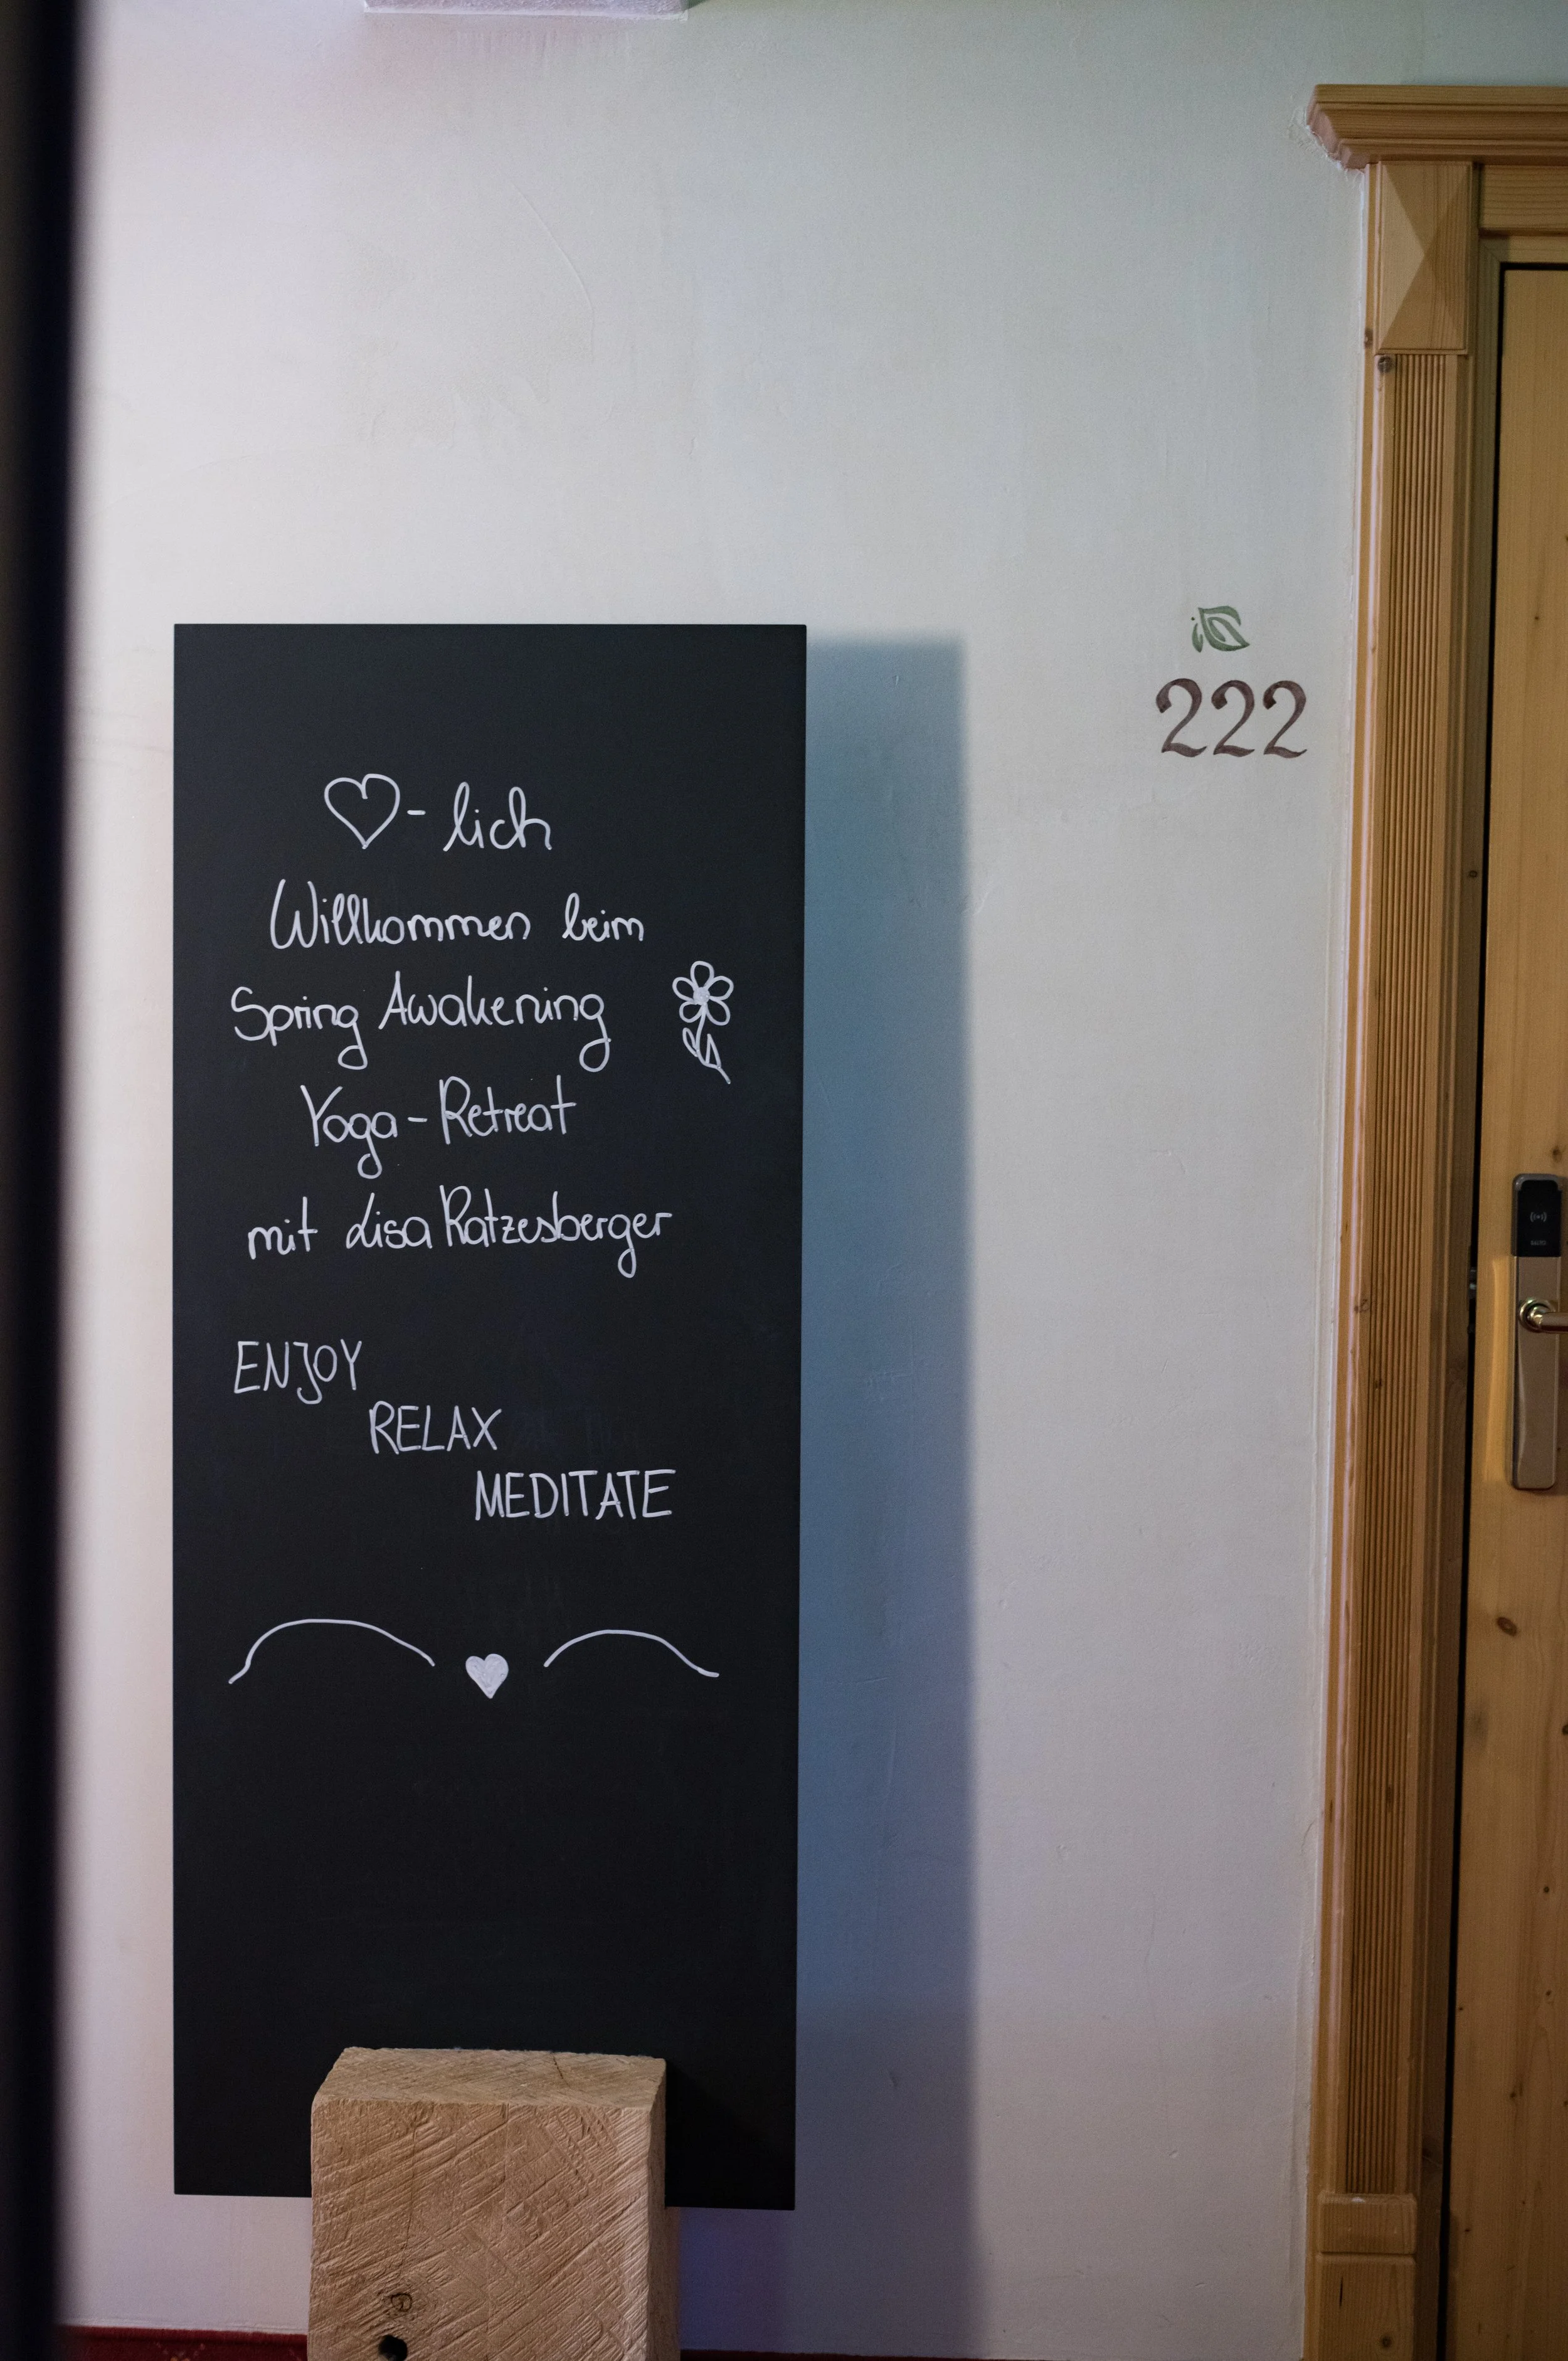 ♡-lich
Willkommen beim
Spring Awakening
Yoga-Retreat
mit Lisa Ratzesberger
ENJOY
RELAX
MEDITATE
222